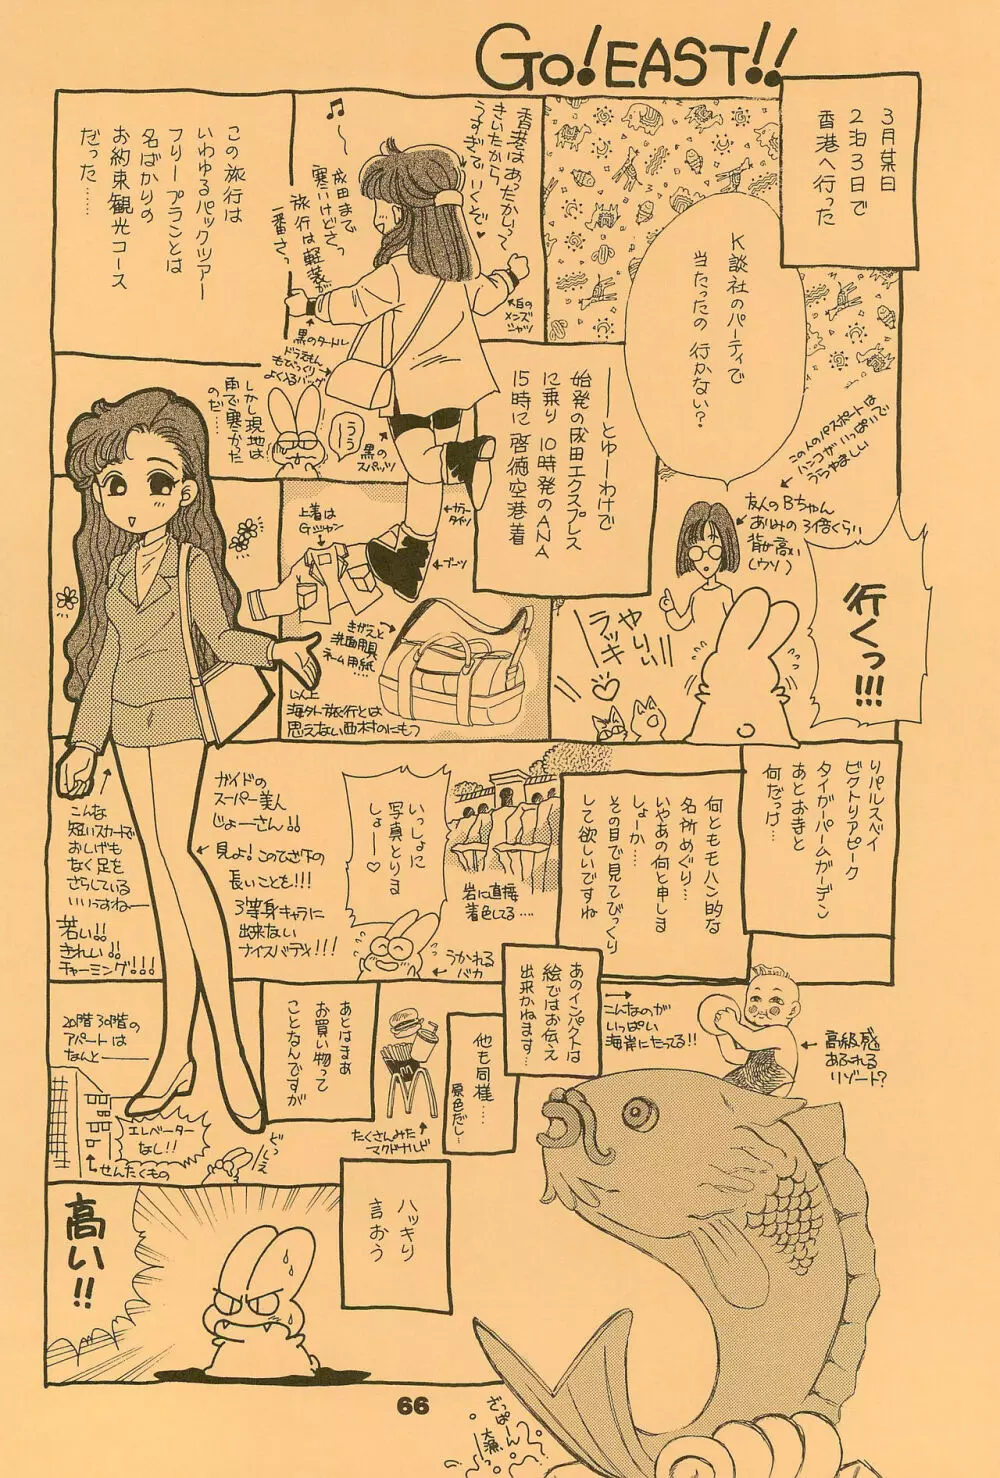 GO! EAST!!
3月某日
2泊3日で
香港へ行った
K談社のパーティで
当たったの 行かない?
この人のパスポートは
ハンコがいっぱいで
うらやましい
友人のBちゃん
あゆみの3倍くらい
背が高い
(ウソ)
行くっ!!!
やりぃ!!
ラッキー♡
――とゆーわけで
始発の成田エクスプレス
に乗り 10時発のANA
15時に啓徳空港着
香港はあったかいって
きいたから
うすぎでいくぞ♥
♫〜
成田まで
寒いけどさっ
旅行は軽装が
一番さっ
大白の
メンズ
シャツ
黒のタートル
ドラえもん
もびっくりー
よく入るバッグ
黒の
スパッツ
ガーター
タイツ
ブーツ
この旅行は
いわゆるパックツアー
フリープランとは
名ばかりの
お約束観光コース
だった……
しかし現地は
雨で寒かった
のだ……
うううー
上着は
Gジャン
きがえと
洗面用具
ネーム用紙
以上
海外旅行とは
思えない西村のにもつ
リパルスベイ
ビクトリアピーク
タイガーバームガーデン
あとおきと
何だっけ…
何ともモハン的な
名所めぐり…
いやあの何と申しま
しょーか…
その目で見てびっくり
して欲しいですね
岩に直接
着色してる….
いっしょに
写真とりま
しょー♡
うかれる
バカ
ガイドの
スーパー美人
じょーさん!!
見よ!このひざ下の
長いことも!!!
3等身キャラに
出来ない
ナイスバディ!!!
こんな
短いスカートで
おしげも
なく足を
さらしている
いいっすねー
若い!!
きれい!!
チャーミング!!!
あのインパクトは
絵ではお伝え
出来かねます…
こんなのが
いっぱい
海岸にたってる!!
高級感
あふれる
リゾート?
他も同様…
原色だし…
たくさんみた
マクドナルド
あとはまぁ
お買い物って
ことなんですが
20階30階の
アパートは
なんと――
エレベーター
なし!!
せんたくもの
どっしぇー
ハッキリ
言おう
高い!!
ざっぱーん
大漁
66